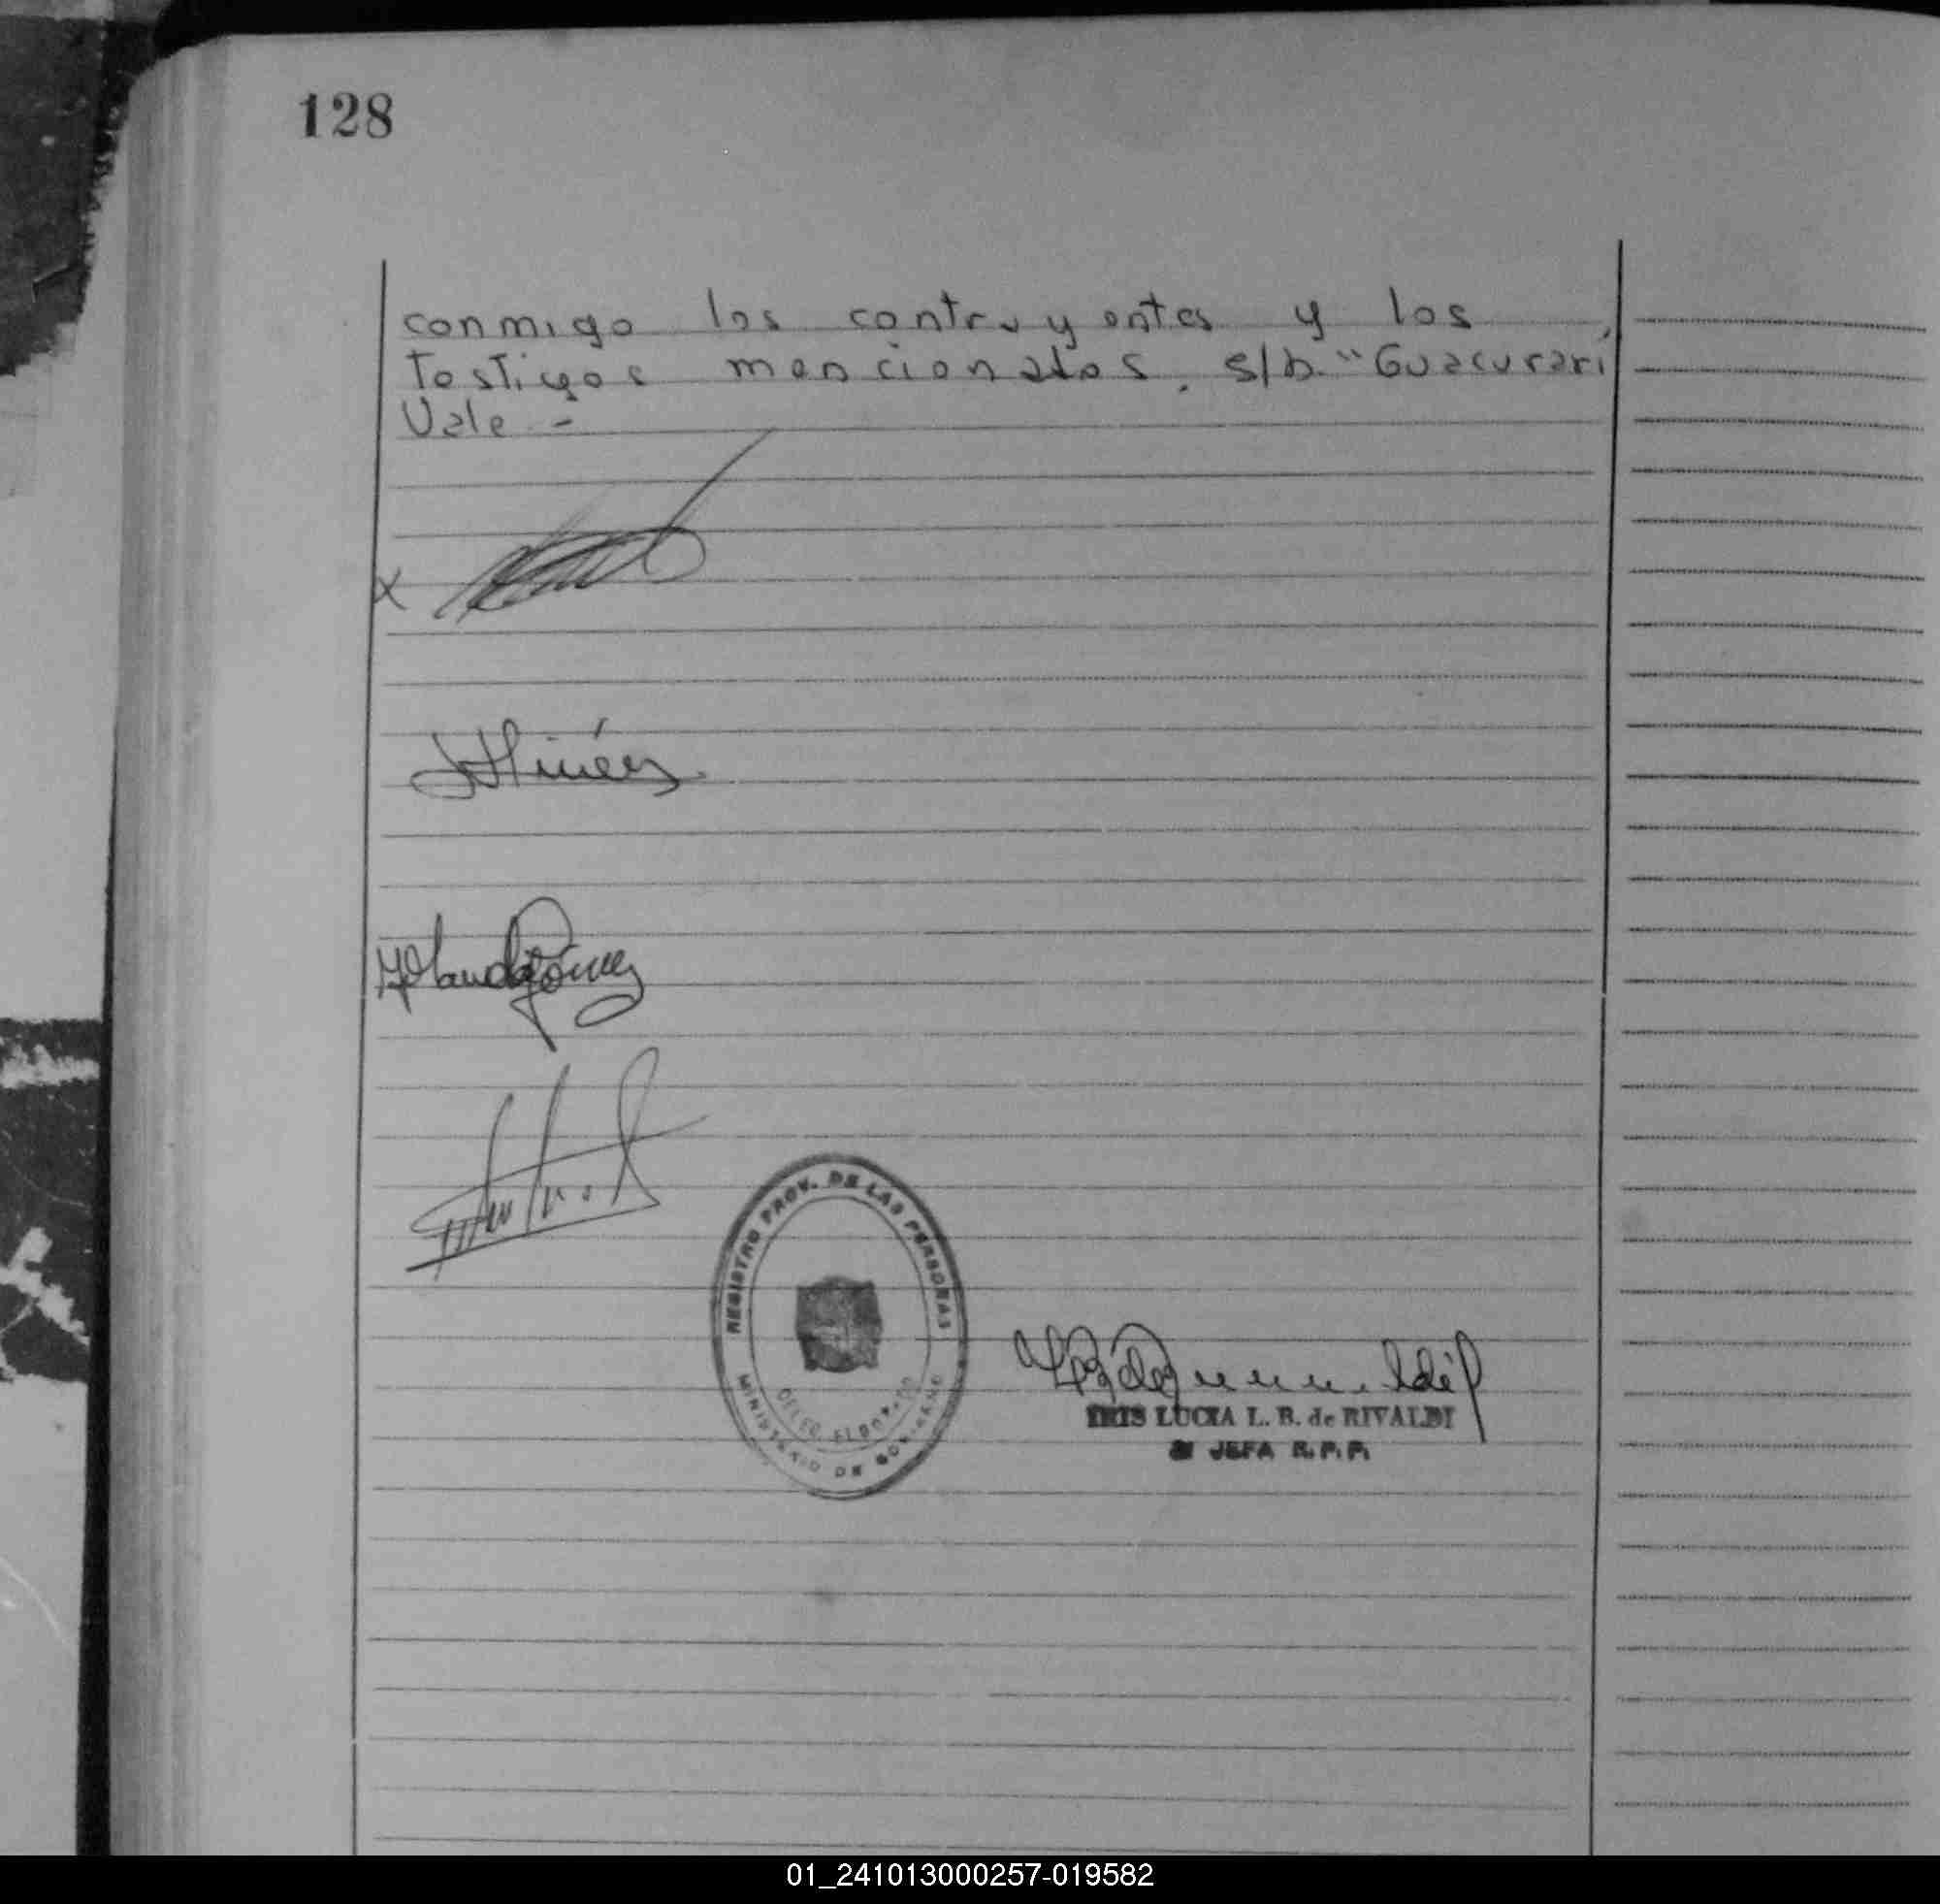 128
conmigo los contrayentes y los
testigos mencionados. s/b. "Guacurarí
Vale -
X
Yolanda Gómez
REGISTRO PROV. DE LAS PERSONAS
MINISTERIO DE GOBIERNO
DELEG. ELDORADO
IRIS LUCIA L. B. de RIVALDI
JEFA R.P.P.
01_241013000257-019582